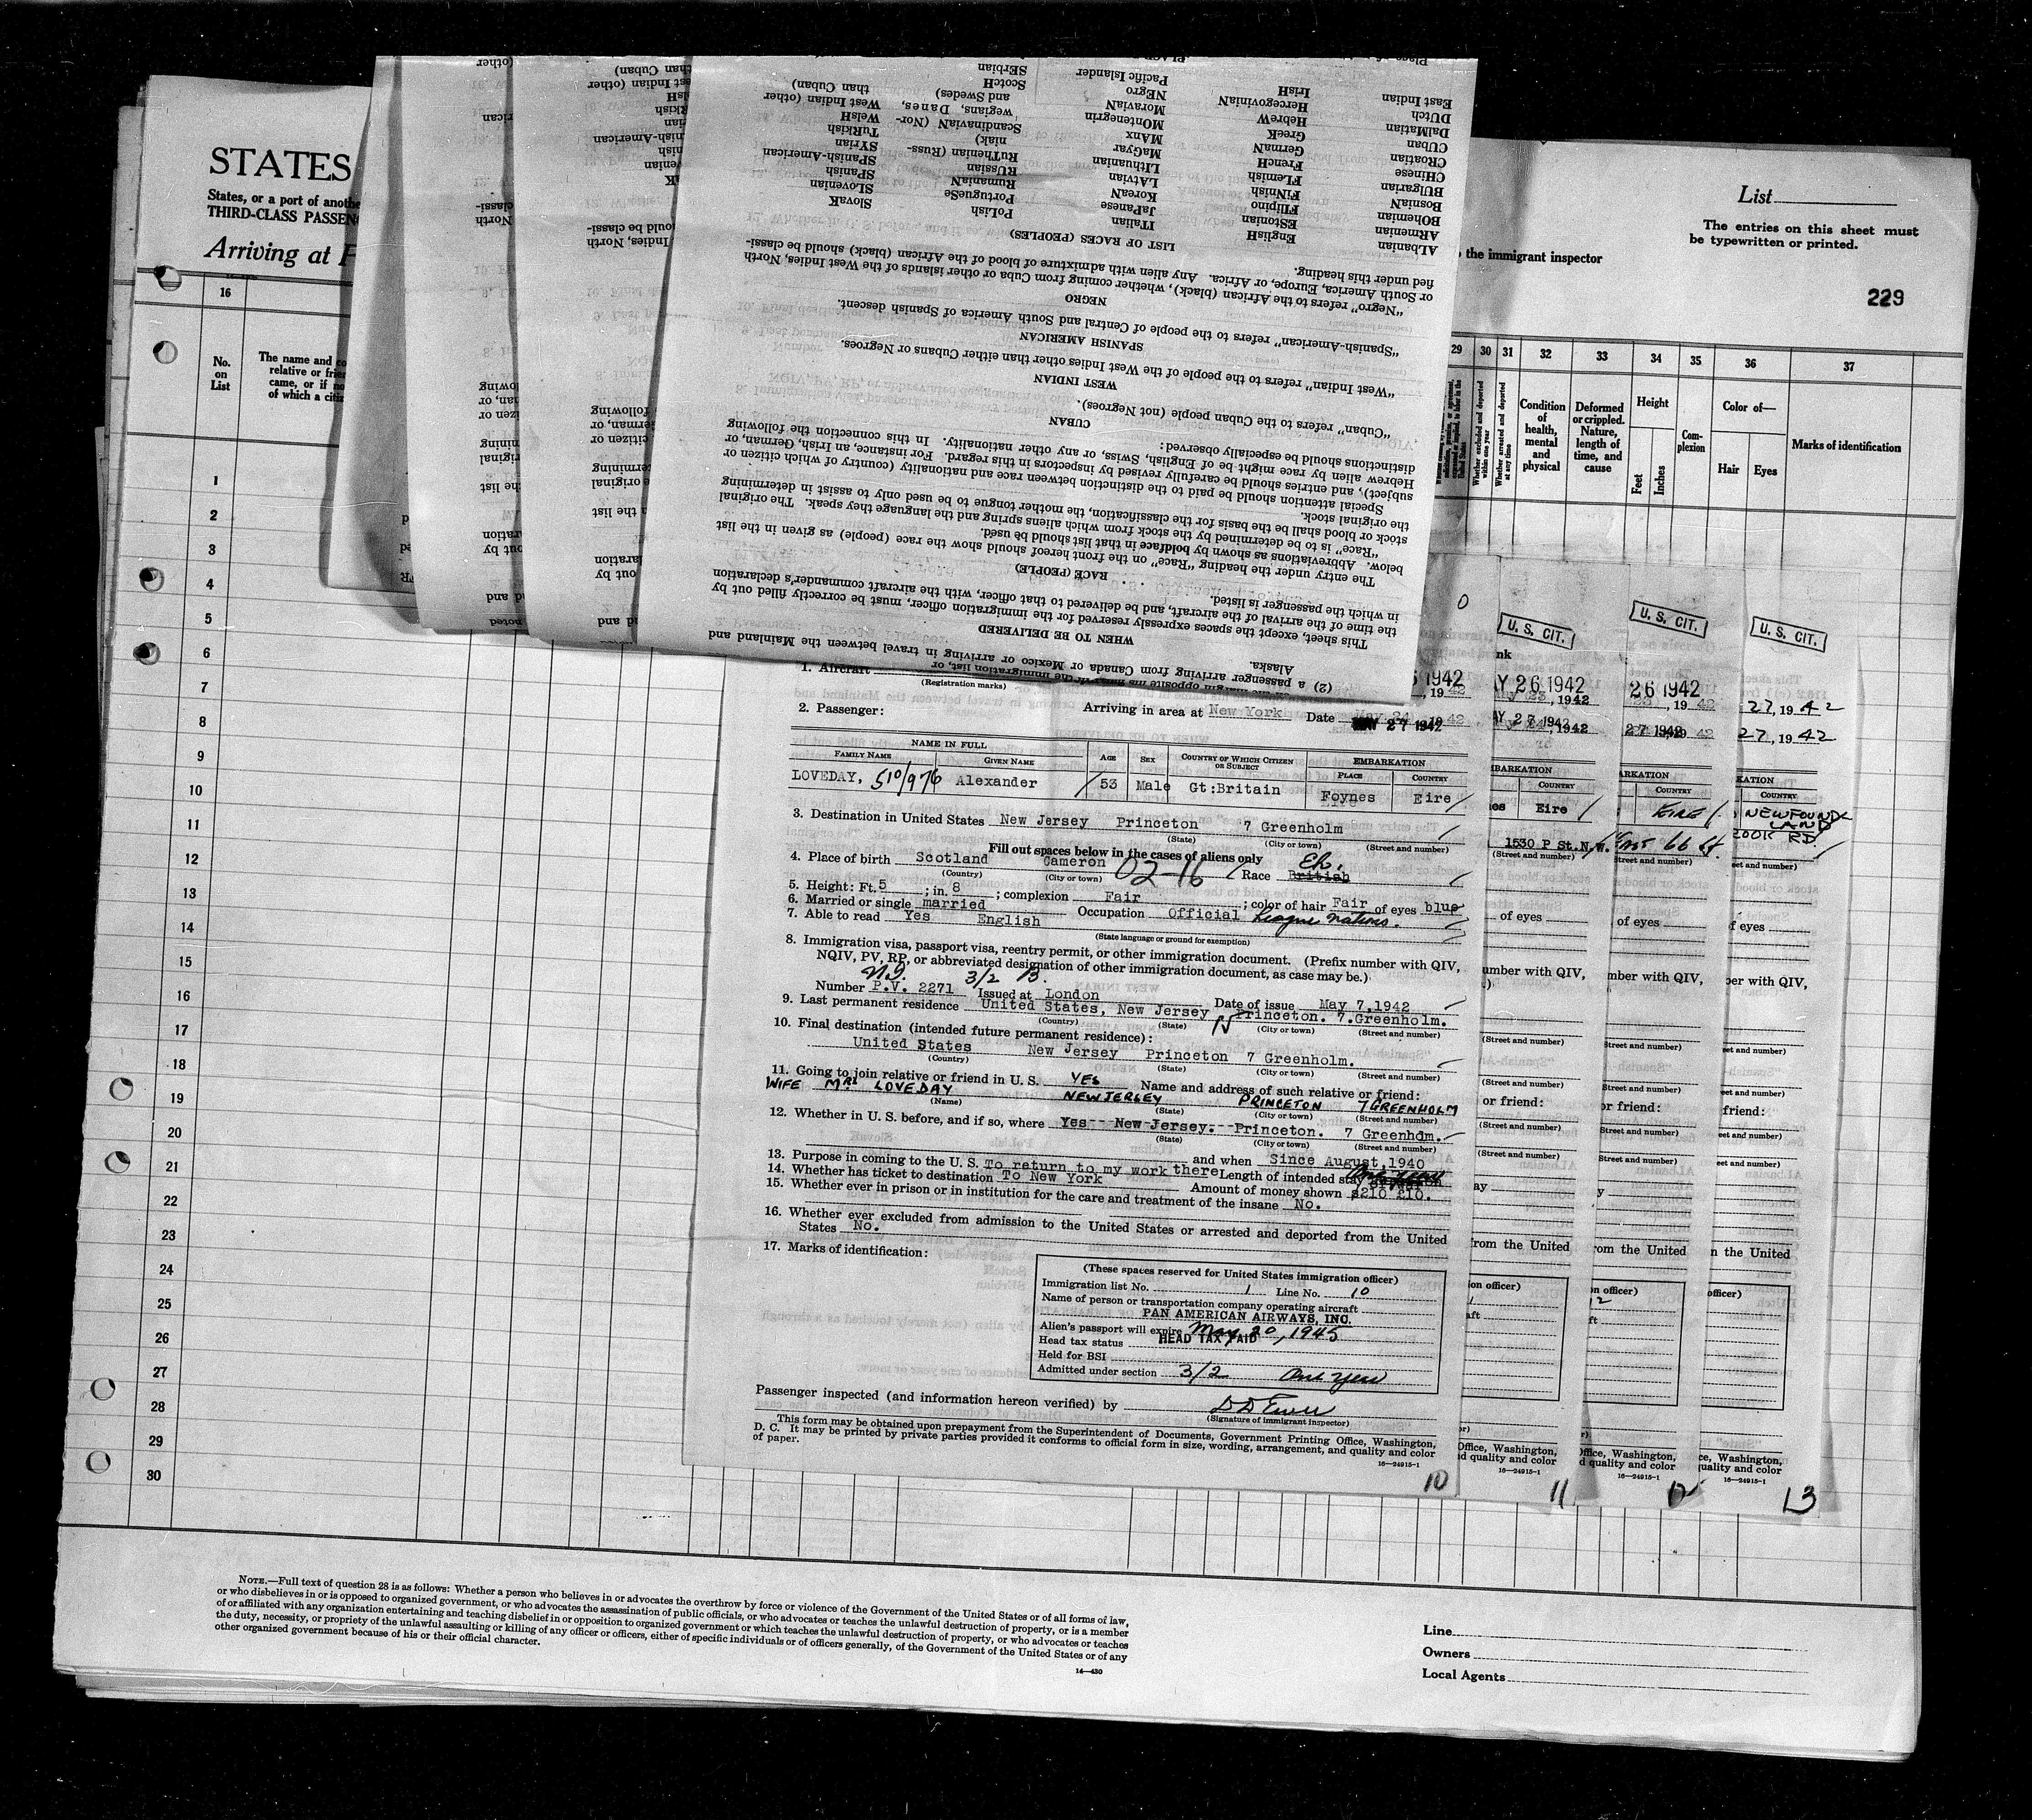 STATES
States, or a port of anothe
THIRD-CLASS PASSEN
Arriving at P
List
The entries on this sheet must
be typewritten or printed.
the immigrant inspector
229
16
No.
on
List
The name and co
relative or frie
came, or if no
of which a citi
29 30 31 32 33 34 35 36 37
Whether excluded and deported within one year
Whether arrested and deported at any time
Condition
of
health,
mental
and
physical
Deformed
or crippled.
Nature,
length of
time, and
cause
Height
Feet
Inches
Com-
plexion
Color of—
Hair
Eyes
Marks of identification
1
2
3
4
5
6
7
8
9
10
11
12
13
14
15
16
17
18
19
20
21
22
23
24
25
26
27
28
29
30
(2) a passenger arriving from Canada or Mexico or arriving in travel between the Mainland and
Alaska.
WHEN TO BE DELIVERED
This sheet, except the spaces expressly reserved for the immigration officer, must be correctly filled out by
the time of the arrival of the aircraft, and be delivered to that officer, with the aircraft commander's declaration
in which the passenger is listed.
RACE (PEOPLE)
The entry under the heading "Race" on the front hereof should show the race (people) as given in the list
below. Abbreviations as shown by boldface in that list should be used.
"Race" is to be determined by the stock from which aliens spring and the language they speak. The original
stock or blood shall be the basis for the classification, the mother tongue to be used only to assist in determining
the original stock.
Special attention should be paid to the distinction between race and nationality (country of which citizen or
subject), and entries should be carefully revised by inspectors in this regard. For instance, an Irish, German, or
Hebrew alien by race might be of English, Swiss, or any other nationality. In this connection the following
distinctions should be especially observed:
CUBAN
"Cuban" refers to the Cuban people (not Negroes).
WEST INDIAN
"West Indian" refers to the people of the West Indies other than either Cubans or Negroes.
SPANISH AMERICAN
"Spanish-American" refers to the people of Central and South America of Spanish descent.
NEGRO
"Negro" refers to the African (black), whether coming from Cuba or other islands of the West Indies, North
or South America, Europe, or Africa. Any alien with admixture of blood of the African (black) should be classi-
fied under this heading.
LIST OF RACES (PEOPLES)
AlBanian
ARmenian
BOhemian
BOsniaN
BUlgarian
CHinese
CRoatian
CUban
DalMatian
DUtch
East Indian
EnglisH
EStonian
FIlipino
FiNnish
FLemish
FrenCH
GermaN
GreeK
HebreW
HercegoviniaN
IrisH
ITalian
JaPanese
KoreaN
LAtvian
LIthuanian
MaGyar
MAnx
MOntenegrin
MoraviaN
NEgro
Pacific Islander
PoLish
PortugueSe
RumaniaN
RUSsian
RuThenian (Russ-
niak)
ScandinaviaN (Nor-
wegians, Danes,
and Swedes)
ScotcH
SErbian
SlovaK
SLovenian
SPanish
SPanish-American
SYrian
TuRkish
WelsH
West Indian (other
than Cuban)
1. Aircraft
(Registration marks)
2. Passenger:
Arriving in area at New York Date May 24, 1942
MAY 27 1942
NAME IN FULL
FAMILY NAME GIVEN NAME AGE SEX COUNTRY OF WHICH CITIZEN OR SUBJECT EMBARKATION
PLACE COUNTRY
LOVEDAY, 510/976 Alexander 53 Male Gt:Britain Foynes Eire
3. Destination in United States New Jersey Princeton 7 Greenholm
(State) (City or town) (Street and number)
Fill out spaces below in the cases of aliens only
4. Place of birth Scotland Cameron 02-16 Race British
(Country) (City or town)
5. Height: Ft. 5; in. 8; complexion Fair; color of hair Fair of eyes blue
6. Married or single married Occupation Official League Nations.
7. Able to read Yes English
(State language or ground for exemption)
8. Immigration visa, passport visa, reentry permit, or other immigration document. (Prefix number with QIV,
NQIV, PV, RP, or abbreviated designation of other immigration document, as case may be.)
3/2 B.
Number P.V. 2271 Issued at London Date of issue May 7,1942
9. Last permanent residence United States, New Jersey Princeton. 7.Greenholm.
(Country) (State) (City or town) (Street and number)
10. Final destination (intended future permanent residence):
United States New Jersey Princeton 7 Greenholm.
(Country) (State) (City or town) (Street and number)
11. Going to join relative or friend in U. S. YES Name and address of such relative or friend:
WIFE MRS LOVEDAY NEW JERSEY PRINCETON 7 GREENHOLM
(Name) (State) (City or town) (Street and number)
12. Whether in U. S. before, and if so, where Yes-- New-Jersey.--Princeton. 7 Greenhdm.
(State) (City or town) (Street and number)
and when Since August,1940
13. Purpose in coming to the U. S. To return to my work there Length of intended stay One year
14. Whether has ticket to destination To New York Amount of money shown $210 £10.
15. Whether ever in prison or in institution for the care and treatment of the insane No.
16. Whether ever excluded from admission to the United States or arrested and deported from the United
States No.
17. Marks of identification:
(These spaces reserved for United States immigration officer)
Immigration list No. 1 Line No. 10
Name of person or transportation company operating aircraft
PAN AMERICAN AIRWAYS, INC.
Alien's passport will expire May 20, 1945
Head tax status HEAD TAX PAID
Held for BSI
Admitted under section 3/2 One Year
Passenger inspected (and information hereon verified) by
(Signature of immigrant inspector)
This form may be obtained upon prepayment from the Superintendent of Documents, Government Printing Office, Washington,
D. C. It may be printed by private parties provided it conforms to official form in size, wording, arrangement, and quality and color
of paper.
16—24915-1
10
U. S. CIT.
AY 26 1942
AY 27 1942
BARKATION
COUNTRY
Eire
1530 P St.N.W.
(Street and number)
of eyes
umber with QIV,
(Street and number)
or friend:
(Street and number)
rom the United
on officer)
Office, Washington,
d quality and color
16—24915-1
11
U. S. CIT.
26 1942
27 1942
ARKATION
COUNTRY
EIRE
East 66 St.
Street and number)
of eyes
mber with QIV,
Street and number)
or friend:
rom the United
n officer)
2
ffice, Washington,
d quality and color
16—24915-1
12
U. S. CIT.
27, 1942
27, 1942
KATION
COUNTRY
NEWFOUND
LAND
ROOK RD.
eet and number)
f eyes
er with QIV,
eet and number)
friend:
n the United
officer)
ce, Washington,
uality and color
16—24915-1
13
NOTE.—Full text of question 28 is as follows: Whether a person who believes in or advocates the overthrow by force or violence of the Government of the United States or of all forms of law,
or who disbelieves in or is opposed to organized government, or who advocates the assassination of public officials, or who advocates or teaches the unlawful destruction of property, or is a member
of or affiliated with any organization entertaining and teaching disbelief in or opposition to organized government or which teaches the unlawful destruction of property, or who advocates or teaches
the duty, necessity, or propriety of the unlawful assaulting or killing of any officer or officers, either of specific individuals or of officers generally, of the Government of the United States or of any
other organized government because of his or their official character.
14—430
Line
Owners
Local Agents